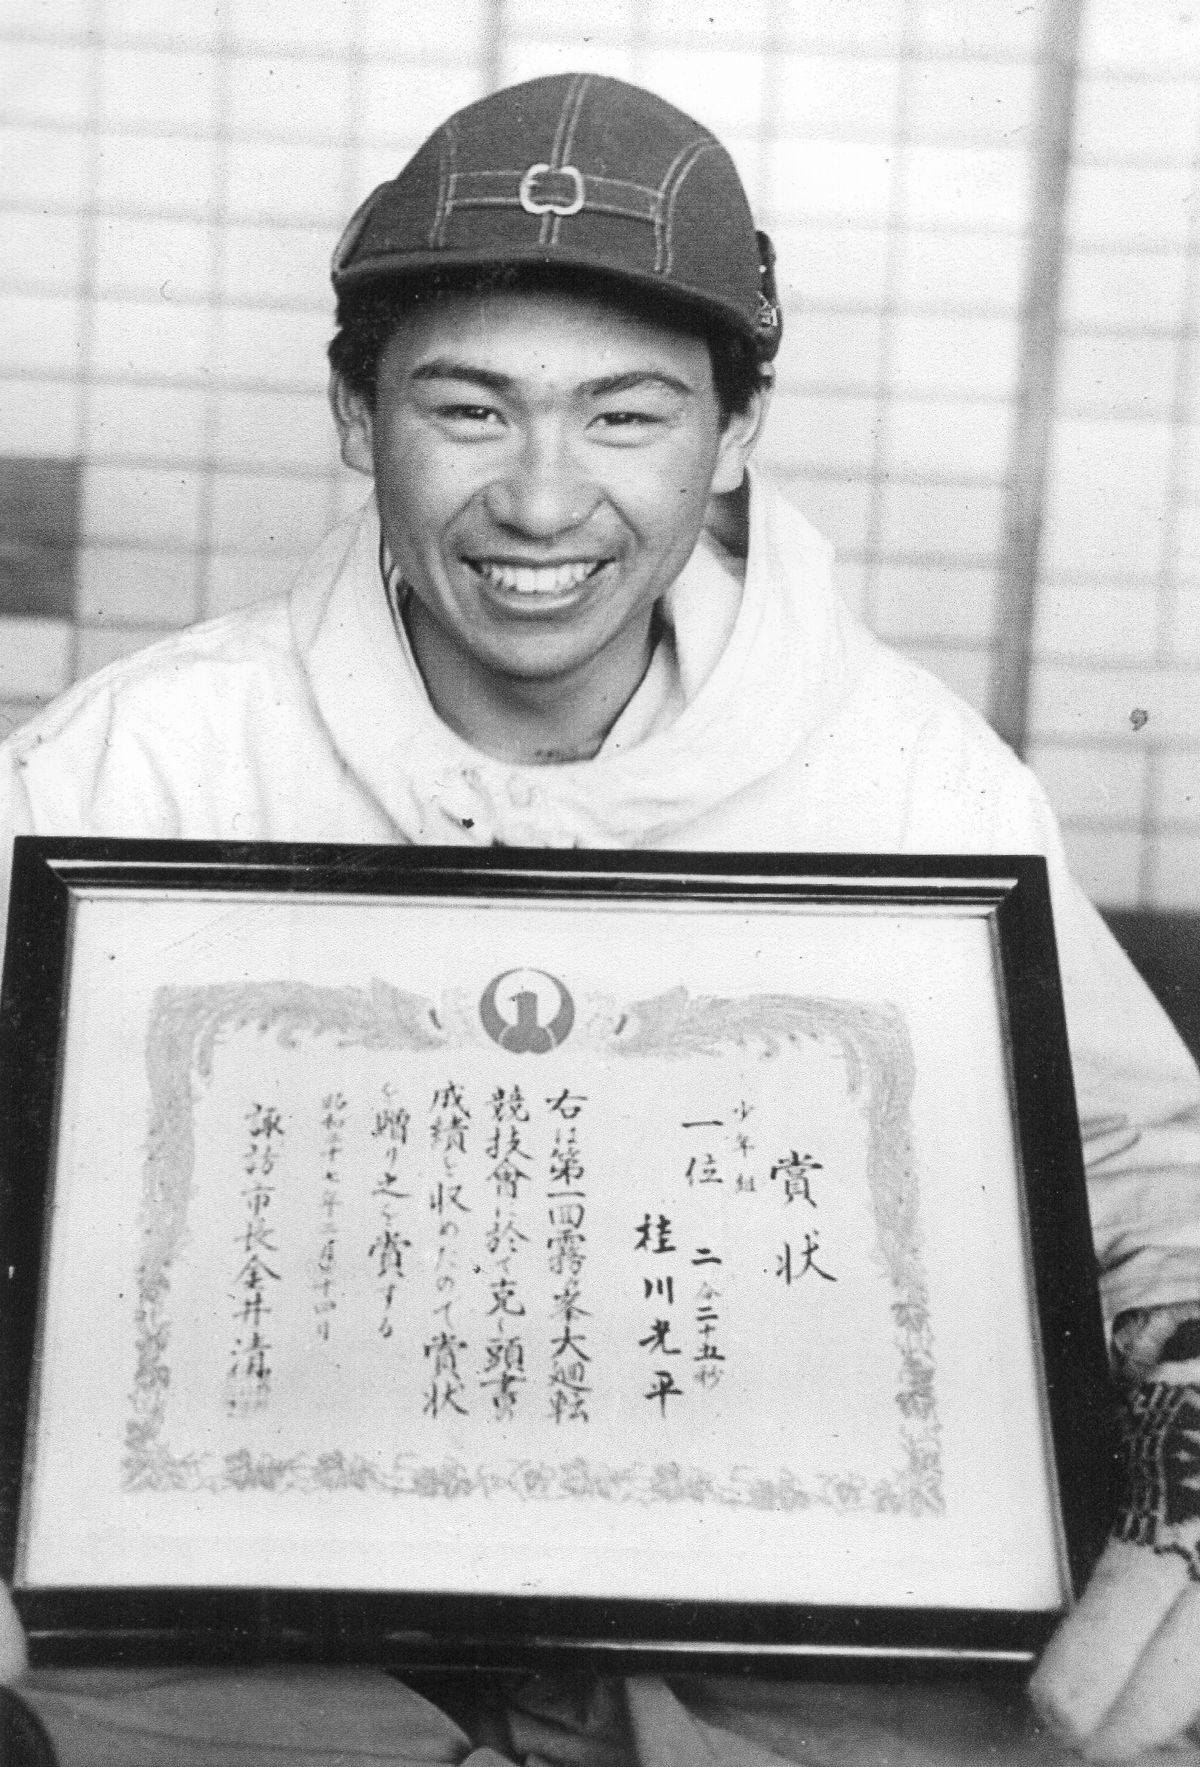 賞状
少年組
一位 二分二十五秒
桂川光平
右は第一回霧ヶ峯大廻転
競技會に於て克く頭書の
成績を収めたので賞状
を贈り之を賞する
昭和三十七年二月十四日
諏訪市長金井清